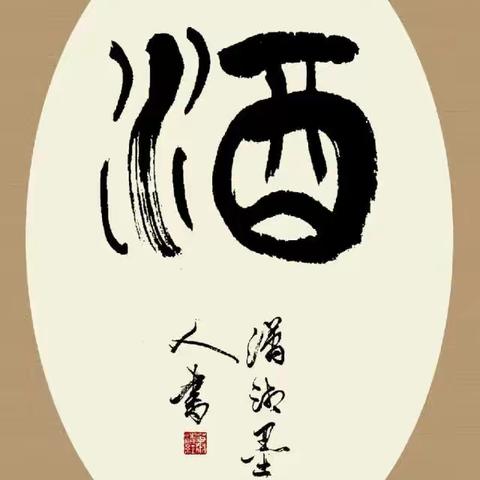 酒
潇湘墨
人书